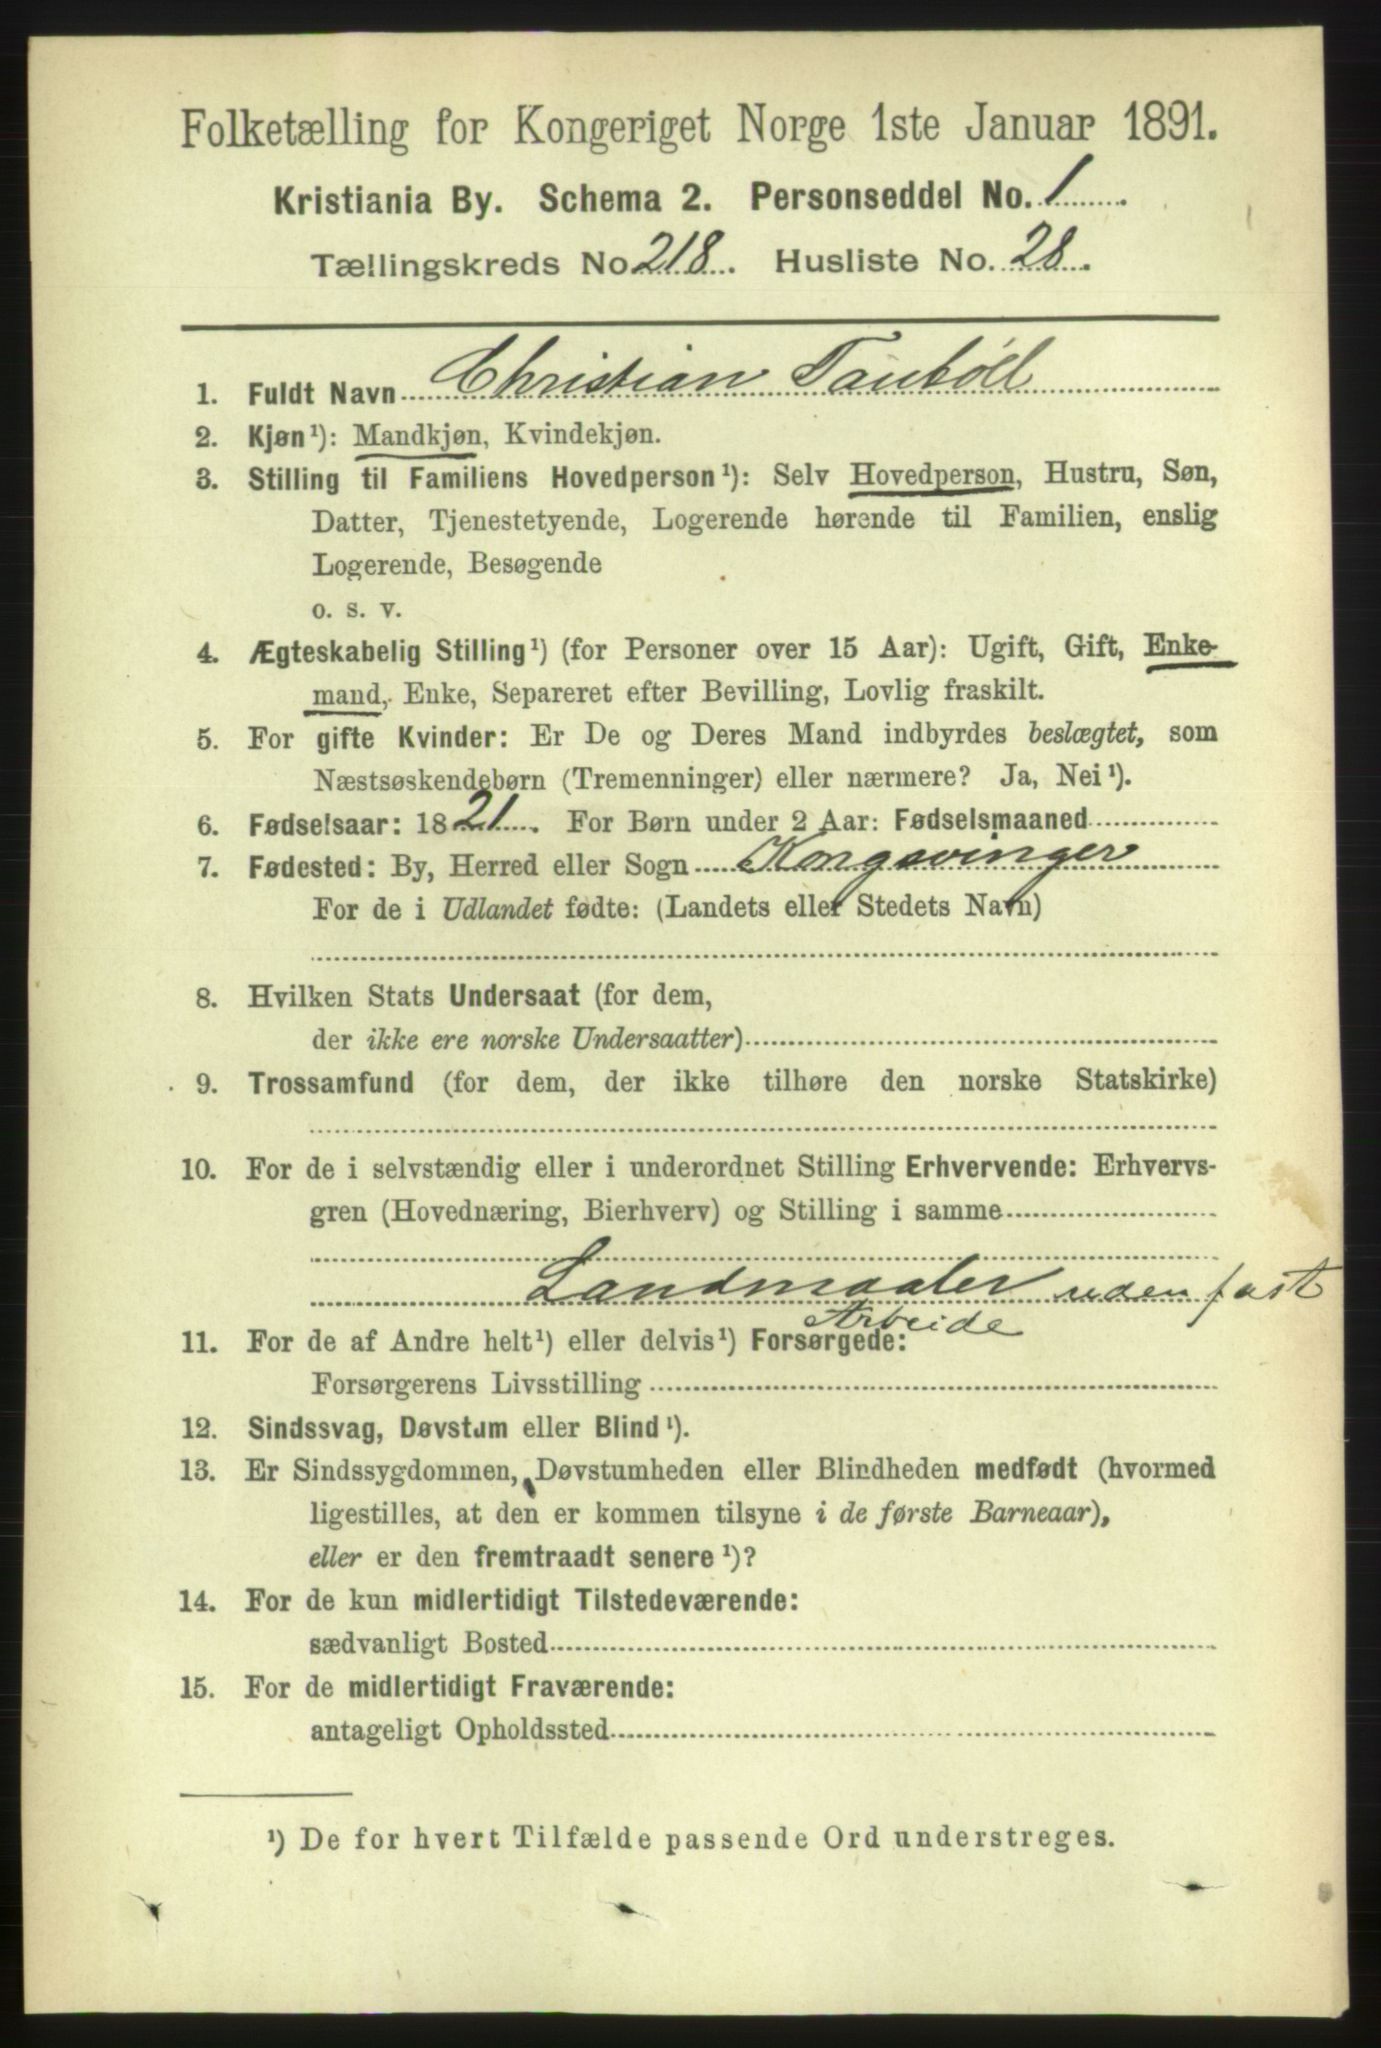 Folketælling for Kongeriget Norge 1ste Januar 1891.
Kristiania By. Schema 2. Personseddel No. 1.
Tællingskreds No 218. Husliste No. 28.
1. Fuldt Navn Christian Taubøll
2. Kjøn¹): Mandkjøn, Kvindekjøn.
3. Stilling til Familiens Hovedperson¹): Selv Hovedperson, Hustru, Søn,
Datter, Tjenestetyende, Logerende hørende til Familien, enslig
Logerende, Besøgende
o. s. v.
4. Ægteskabelig Stilling¹) (for Personer over 15 Aar): Ugift, Gift, Enke-
mand, Enke, Separeret efter Bevilling, Lovlig fraskilt.
5. For gifte Kvinder: Er De og Deres Mand indbyrdes beslægtet, som
Næstsøskendebørn (Tremenninger) eller nærmere? Ja, Nei¹).
6. Fødselsaar: 1821. For Børn under 2 Aar: Fødselsmaaned
7. Fødested: By, Herred eller Sogn Kongsvinger
For de i Udlandet fødte: (Landets eller Stedets Navn)
8. Hvilken Stats Undersaat (for dem,
der ikke ere norske Undersaatter)
9. Trossamfund (for dem, der ikke tilhøre den norske Statskirke)
10. For de i selvstændig eller i underordnet Stilling Erhvervende: Erhvervs-
gren (Hovednæring, Bierhverv) og Stilling i samme
Landmaaler uden fast
Arbeide
11. For de af Andre helt¹) eller delvis¹) Forsørgede:
Forsørgerens Livsstilling
12. Sindssvag, Døvstum eller Blind¹).
13. Er Sindssygdommen, Døvstumheden eller Blindheden medfødt (hvormed
ligestilles, at den er kommen tilsyne i de første Barneaar),
eller er den fremtraadt senere¹)?
14. For de kun midlertidigt Tilstedeværende:
sædvanligt Bosted
15. For de midlertidigt Fraværende:
antageligt Opholdssted
¹) De for hvert Tilfælde passende Ord understreges.